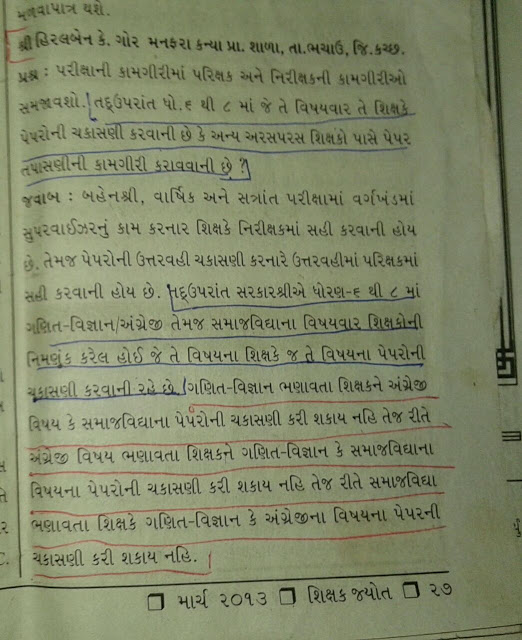 મળવાપાત્ર થશે.
શ્રી હિરલબેન કે. ગોર મનફરા કન્યા પ્રા. શાળા, તા.ભચાઉ, જિ.કચ્છ.
પ્રશ્ન : પરીક્ષાની કામગીરીમાં પરિક્ષક અને નિરીક્ષકની કામગીરીઓ
સમજાવશો. તદ્ઉપરાંત ધો.૬ થી ૮ માં જે તે વિષયવાર તે શિક્ષકે
પેપરોની ચકાસણી કરવાની છે કે અન્ય અરસપરસ શિક્ષકો પાસે પેપર
તપાસણીની કામગીરી કરાવવાની છે ?
જવાબ : બહેનશ્રી, વાર્ષિક અને સત્રાંત પરીક્ષામાં વર્ગખંડમાં
સુપરવાઈઝરનું કામ કરનાર શિક્ષકે નિરીક્ષકમાં સહી કરવાની હોય
છે. તેમજ પેપરોની ઉત્તરવહી ચકાસણી કરનારે ઉત્તરવહીમાં પરિક્ષકમાં
સહી કરવાની હોય છે. તદ્ઉપરાંત સરકારશ્રીએ ધોરણ-૬ થી ૮ માં
ગણિત-વિજ્ઞાન/અંગ્રેજી તેમજ સમાજવિદ્યાના વિષયવાર શિક્ષકોની
નિમણુંક કરેલ હોઈ જે તે વિષયના શિક્ષકે જ તે વિષયના પેપરોની
ચકાસણી કરવાની રહે છે. ગણિત-વિજ્ઞાન ભણાવતા શિક્ષકને અંગ્રેજી
વિષય કે સમાજવિદ્યાના પેપરોની ચકાસણી કરી શકાય નહિ તેજ રીતે
અંગ્રેજી વિષય ભણાવતા શિક્ષકને ગણિત-વિજ્ઞાન કે સમાજવિદ્યાના
વિષયના પેપરોની ચકાસણી કરી શકાય નહિ તેજ રીતે સમાજવિદ્યા
ભણાવતા શિક્ષકે ગણિત-વિજ્ઞાન કે અંગ્રેજીના વિષયના પેપરની
ચકાસણી કરી શકાય નહિ.
માર્ચ ૨૦૧૩ શિક્ષક જ્યોત ૨૭